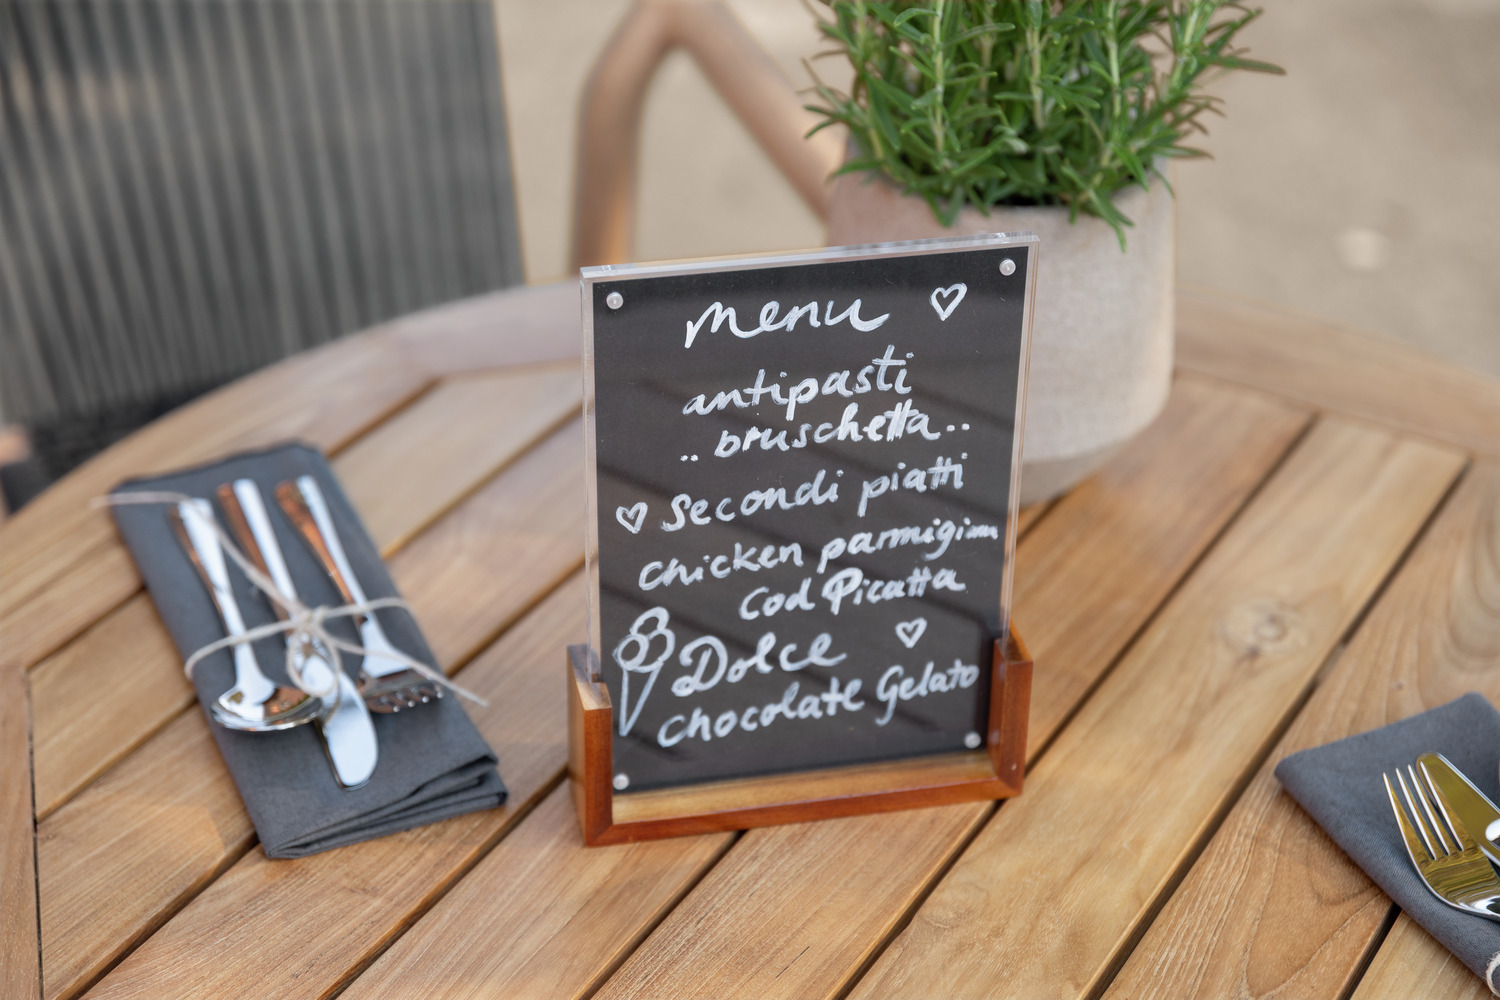 menu
antipasti
.. bruschetta..
Secondi piatti
chicken parmigiana
Cod Picatta
Dolce
chocolate Gelato